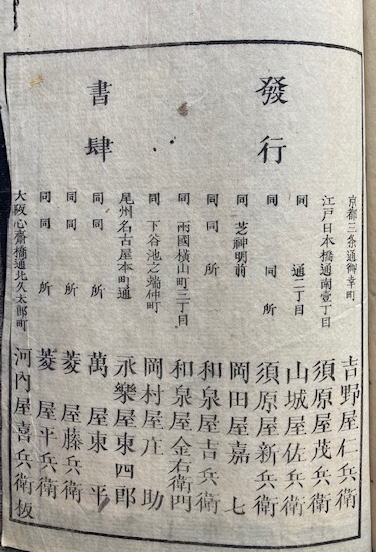 發行
書肆
京都三条通御幸町 吉野屋仁兵衛
江戸日本橋通南壹丁目 須原屋茂兵衛
同 通二丁目 山城屋佐兵衛
同 同所 須原屋新兵衛
同 芝神明前 岡田屋嘉七
同 同所 和泉屋吉兵衛
同 兩國横山町三丁目 和泉屋金右衛門
同 下谷池之端仲町 岡村屋庄助
尾州名古屋本町通 永樂屋東四郎
同 同所 萬屋東平
同 同所 菱屋藤兵衛
同 同所 菱屋平兵衛
大阪心齋橋通北久太郎町 河内屋喜兵衛板